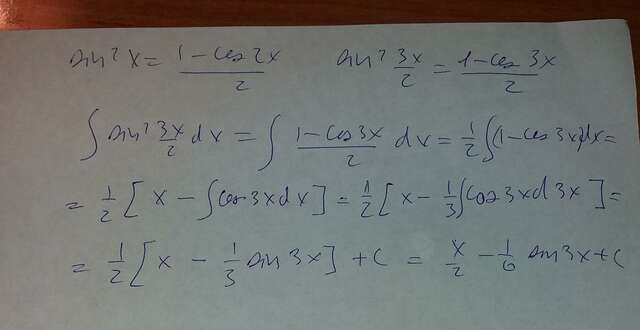 sin² x = (1 - cos 2x)/2    sin² 3x/2 = (1 - cos 3x)/2
∫ sin² 3x/2 dx = ∫ (1 - cos 3x)/2 dx = 1/2 ∫(1 - cos 3x)dx =
= 1/2 [ x - ∫cos 3x dx ] = 1/2 [ x - 1/3 ∫cos 3x d 3x ] =
= 1/2 [ x - 1/3 sin 3x ] + C = x/2 - 1/6 sin 3x + C